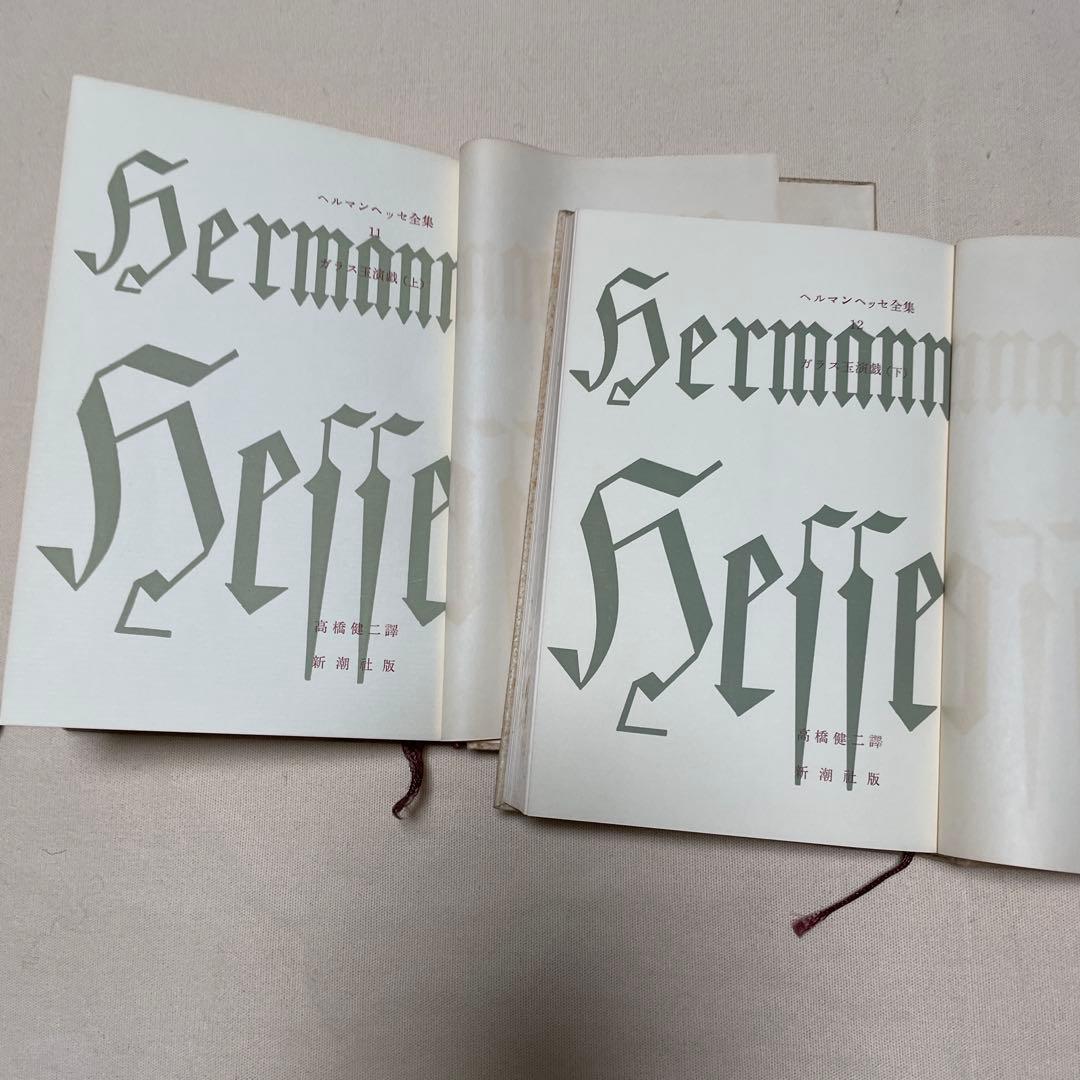 ヘルマンヘッセ全集
11
ガラス玉演戯(上)
Hermann
Hesse
高橋健二譯
新潮社版
ヘルマンヘッセ全集
12
ガラス玉演戯(下)
Hermann
Hesse
高橋健二譯
新潮社版